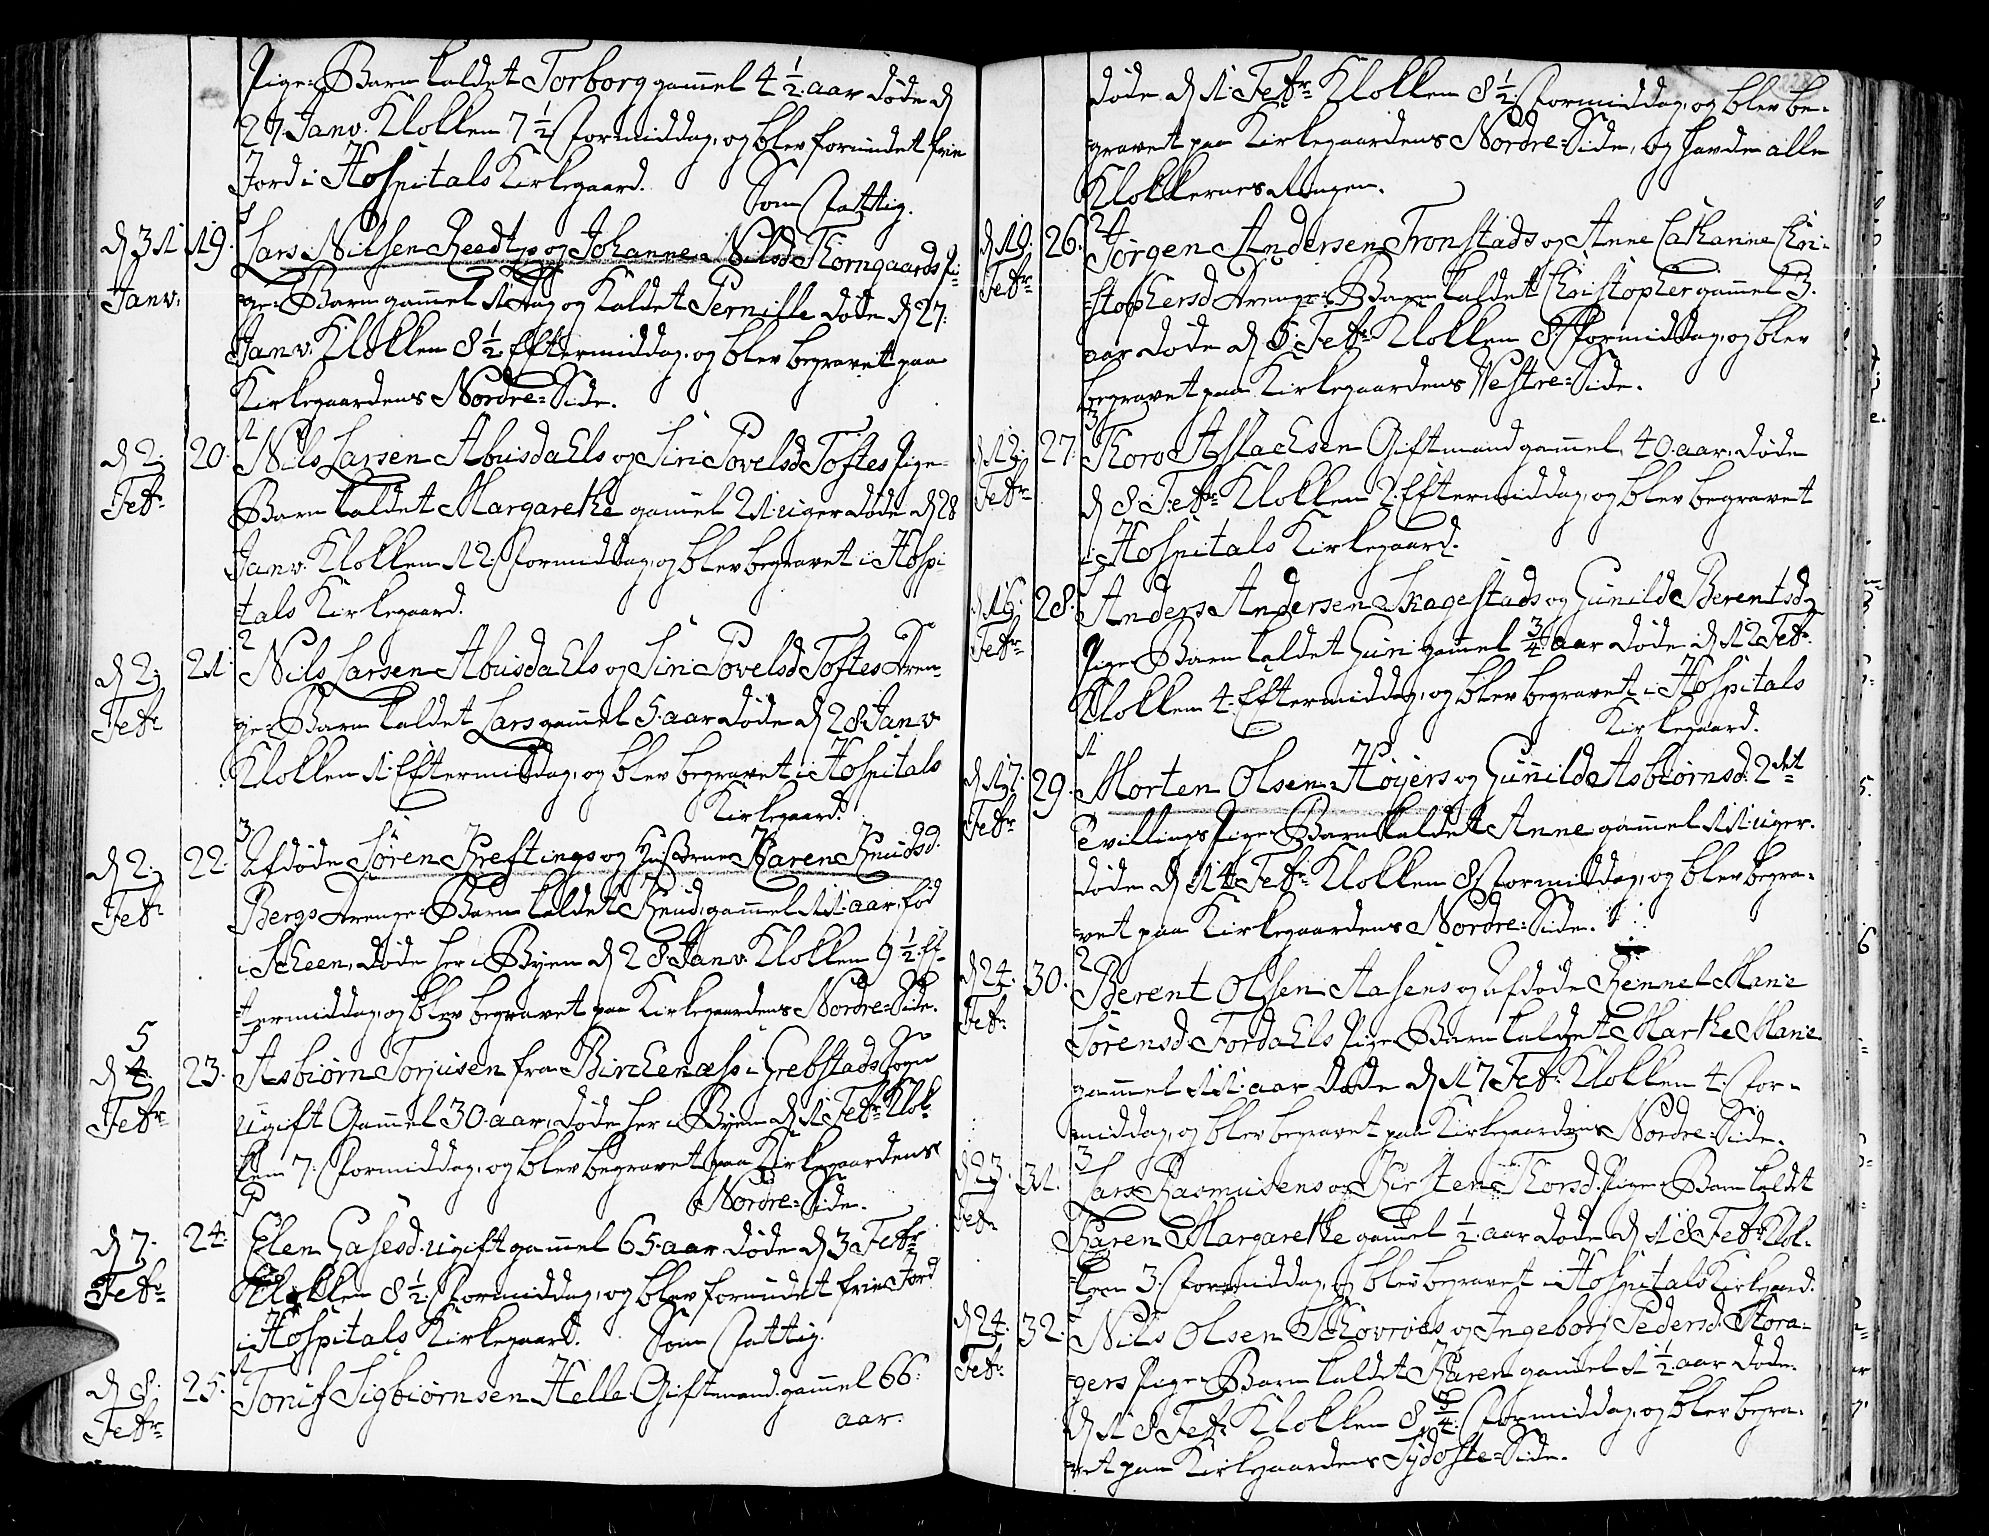 Pige-Barn kaldet Torborg gammel 4 1/2 aar døde d
27. Janv. Klokken 7 1/2 Formiddag, og blev forundet frie
Jord i Hospitals Kirkegaard.
Som Fattig.
d 31 Janv. 19. Lars Nilsen Reedtz og Johanne Nilsd Thorngaards Pi-
ge-Barn gammel 1 Dag og kaldet Pernille døde d 27.
Janv. Klokken 8 1/2 Eftermiddag, og blev begravet paa
Kirkegaardens Nordre-Side.
1
d 2. Febr. 20. Nils Larsen Abusdahls og Siri Povelsd Toftes Pige-
Barn kaldet Margarethe gamel 21 uger døde d 28
Janv. Klokken 12 Formiddag, og blev begravet i Hospi-
tals Kirkegaard.
2
d 2. Febr. 21 Nils Larsen Abusdahls og Siri Povelsd Toftes Dren-
ge-Barn kaldet Lars gamel 5 aar døde d 28 Janv
Klokken 1 Eftermiddag, og blev begravet i Hospitals
Kirkegaard.
3.
d 2. Febr. 22. Afdøde Søren Kreftings og Hustrue Karen Knudsd.
Bergs Drenge-Barn kaldet Knud, gammel 11 aar, fød
i Scheen, døde her i Byen d 28 Janv. Klokken 9 1/2 Ef-
termiddag, og blev begravet paa Kirkegaardens Nordre-Side.
5
d Febr. 23. Asbiørn Torjusen fra Birchenæss i Grebstads Sogn
ugift Gammel 30 aar, døde her i Byen d 1 Febr Klok
ken 7. Formiddag, og blev begravet paa Kirkegaardens
Nordre-Side.
d 7. Febr. 24. Elen Hasesd. ugift gammel 65 aar døde d 3 Febr.
Klokken 8 1/2 Formiddag, og blev forundet frie Jord
i Hospitals Kirkegaard. Som Fattig.
1
d 8. Febr. 25. Tonis Sigbiørnsen Helle Giftmand gammel 66.
aar.
døde d 1 Febr Klokken 8 1/2 Formiddag, og blev be-
gravet paa Kirkegaardens Nordre-Side, og havde alle
Klokkernes Ringen.
2
d 10. Febr. 26. Jørgen Andersen Tronstads og Anne Cathanine Chri-
stophersd Drenge-Barn kaldet Christopher gammel 3.
aar døde d 6. Febr Klokken 8 Formiddag, og blev
begravet paa Kirkegaardens Vestre-Side.
3
d 12. Febr. 27. Thoro Aslachsen Giftmand gammel 40 aar, døde
d 8 Febr Klokken 2 Eftermiddag, og blev begravet
i Hospitals Kirkegaard.
d 16. Febr. 28. Anders Andersen Skagestads og Gunild Berentsd
Pige-Barn kaldet Guri gammel 3/4 aar døde d 12 Febr.
Klokken 4 Eftermiddag, og blev begravet i Hospitals
Kirkegaard.
1
d 17. Febr. 29. Morten Olsen Høyers og Gunild Asbiørnsd. 2det
Tvillings Pige-Barn kaldet Anne gammel 11 uger.
døde d 14 Febr Klokken 8 Formiddag, og blev begra-
vet paa Kirkegaardens Nordre-Side.
2
d 24. Febr. 30. Berent Olsen Aasens og Afdøde Rennel Marie
Sørensd. Fordahls Pige-Barn kaldet Marthe Marie
gammel 11 aar døde d 17 Febr. Klokken 4 For-
middag, og blev begravet paa Kirkegaardens Nordre-Side.
3
d 23. Febr. 31. Lars Rasmusens og Kirsten Thorsd. Pige-Barn kaldet
Karen Margarethe gamel 1/2 aar døde d 18 Febr Klok-
ken 3. Formiddag, og blev begravet i Hospitals Kirkegaard.
d 24. Febr. 32. Nils Olsen Schovroes og Ingeborj Pedersd. Stora-
gers Pige-Barn kaldet Karen gamel 1 1/2 aar døde
d 18 Febr Klokken 8 3/4 Formiddag, og blev begra-
vet paa Kirkegaardens Sydoste-Side.